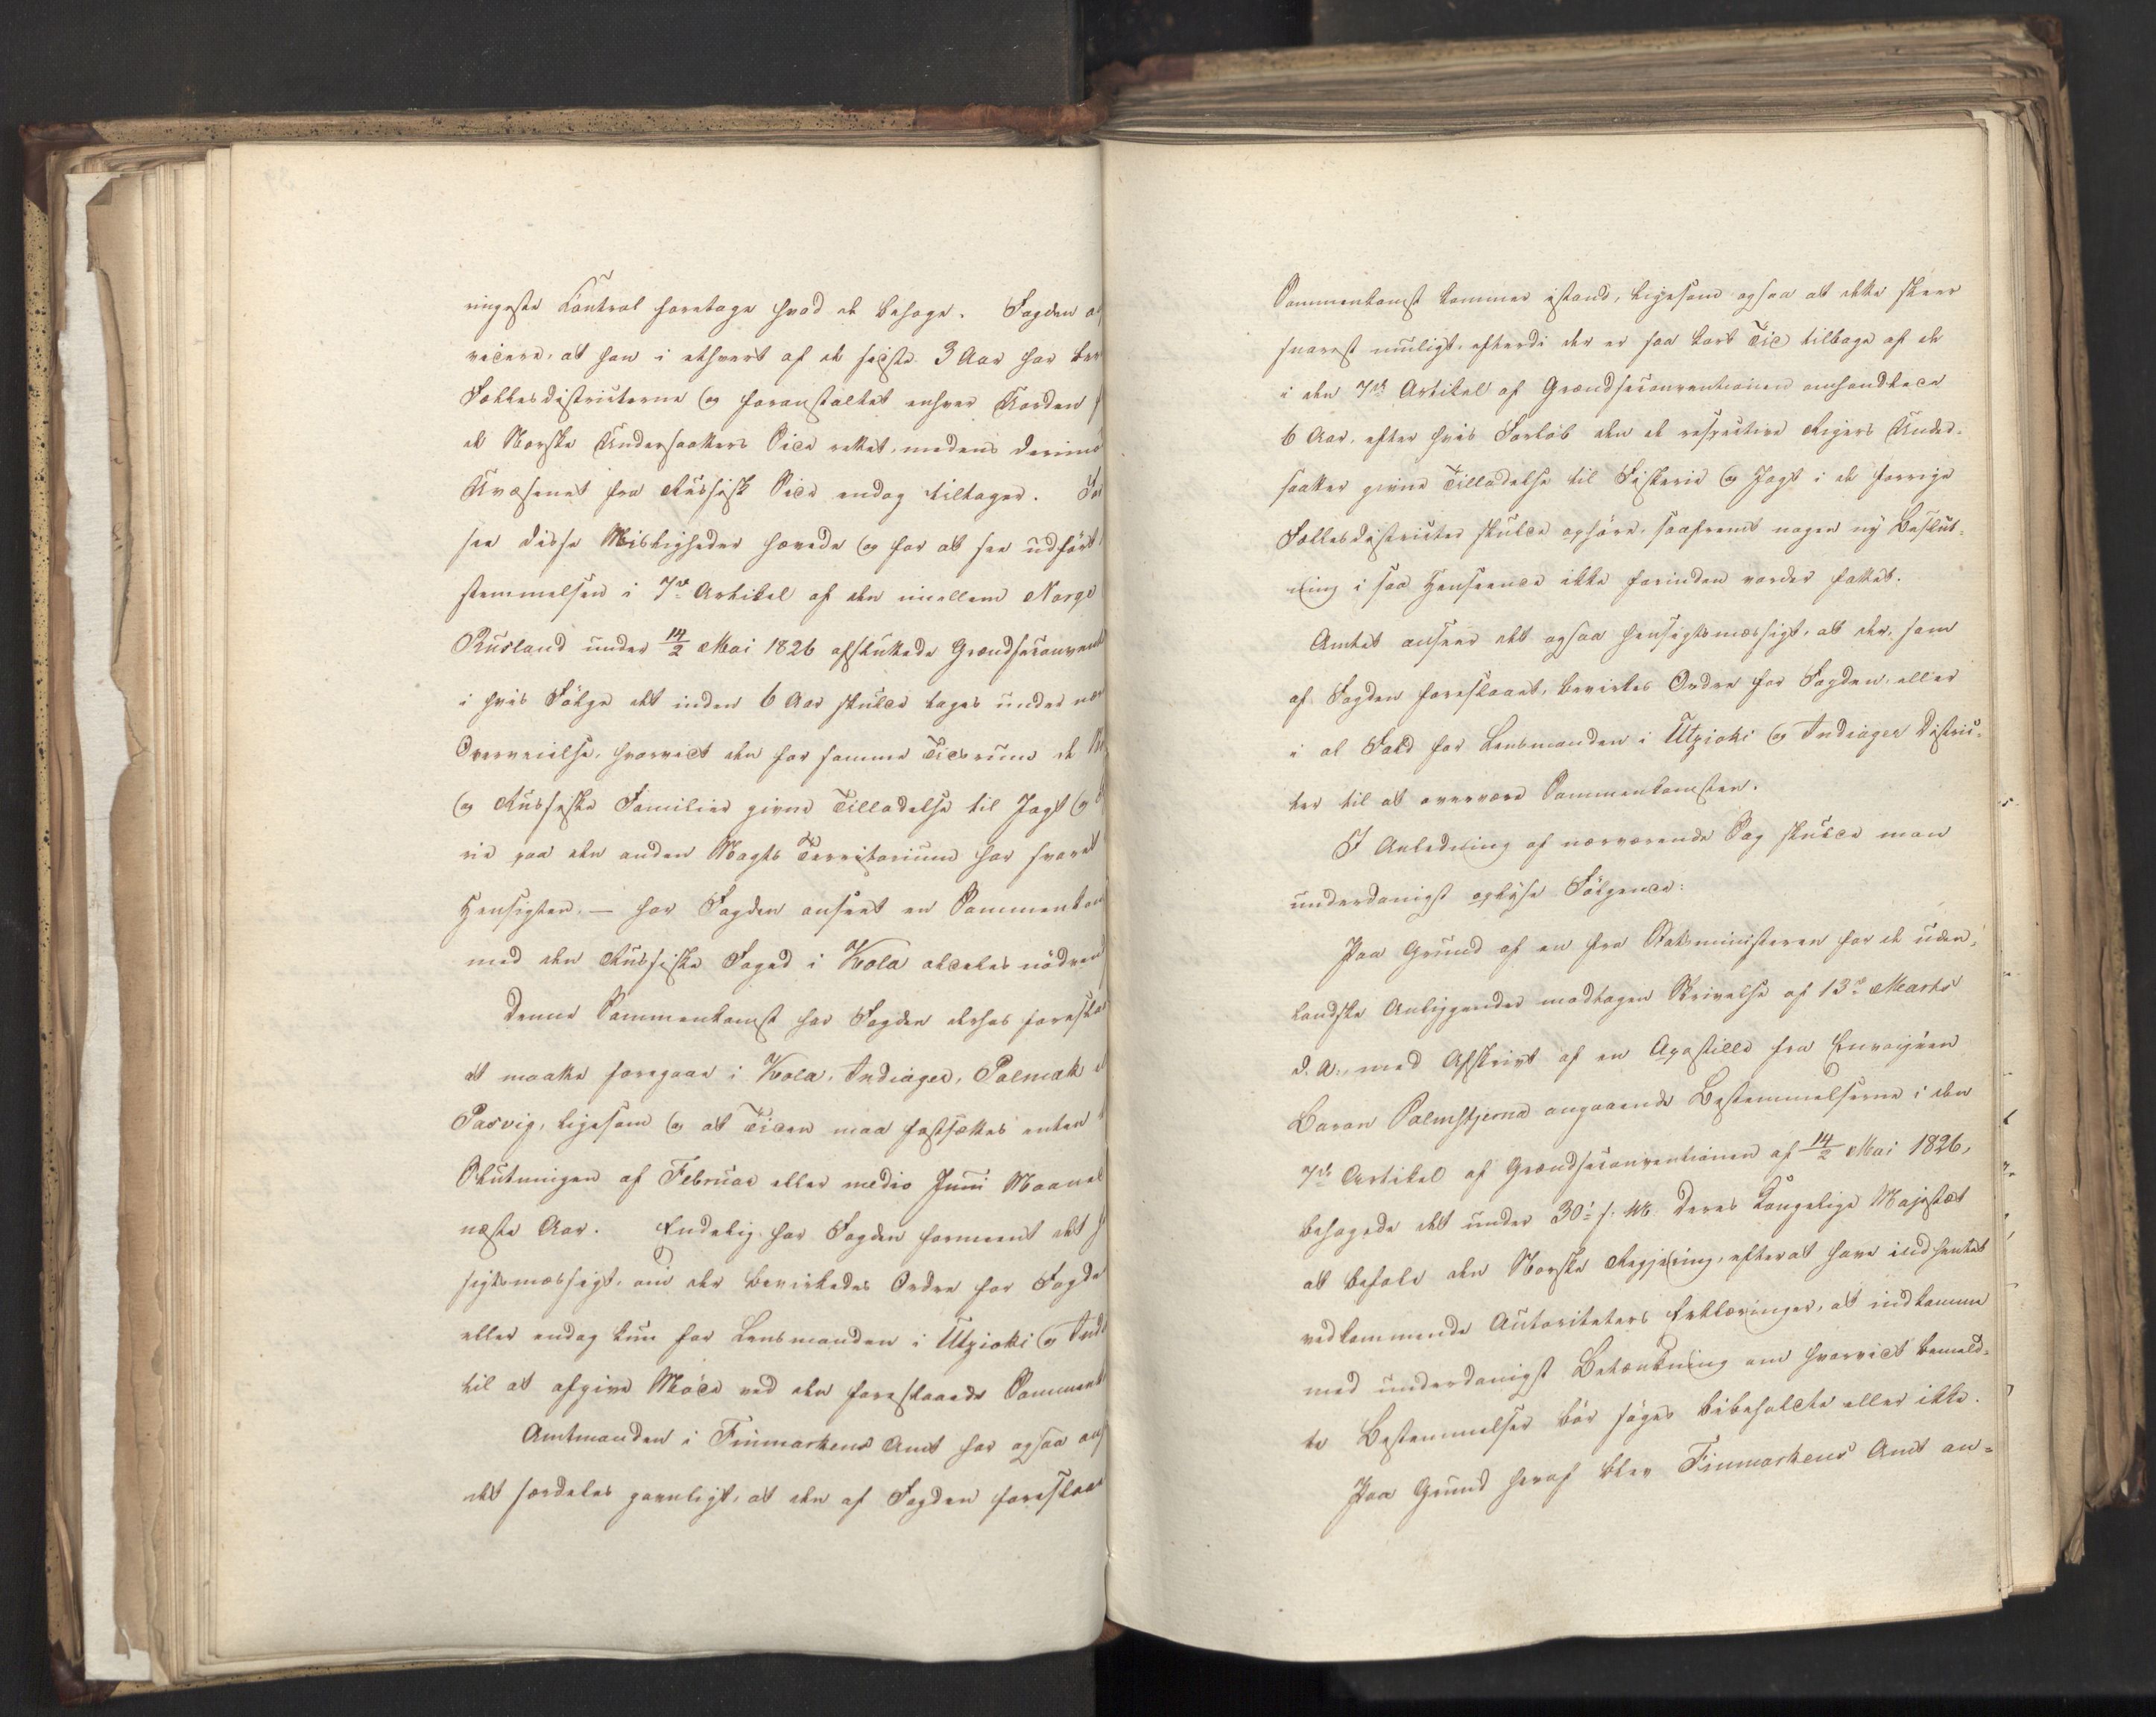 ringeste Control foretage hvad de behage. Fogden
videre, at han i ethvert af de sidste 3 Aar har
Fællesdistricterne og foranstaltet enhver Uorden
de Norske Undersaatters Side rettet, medens derimod
Uvæsenet fra Russisk Side endog tiltager. For
see disse Misligheder hævede og for at see udført
stemmelsen i 7de Artikel af den imellem Norge
Rusland under 14/2 Mai 1826 afsluttede Grændseconvent
i hvis Følge det inden 6 Aar skulde tages under
Overveielse, hvorvidt den for samme Tidsrum de
og Russiske Familier givne Tilladelse til Jagt og
rie paa den anden Magts Territorium har svaret
Hensigten, — har Fogden anseet en Sammenkom
med den Russiske Foged i Kola aldeles nødven
Denne Sammenkomst har Fogden derhos foreslaa
at maatte foregaae i Kola, Indiager, Polmak
Pasvig, ligesom og at Tiden maa fastsættes enten
Slutningen af Februar eller medio Juni Maaned
næste Aar. Endelig har Fogden formeent det
sigtsmæssigt, om der bevirkedes Ordre for Fogde
eller endog kun for Lensmanden i Utzioki og Indi
til at afgive Møde ved den foreslaaede Samment
Amtmanden i Finmarkens Amt har ogsaa ans
det særdeles gavnligt, at den af Fogden foreslaa
Sammenkomst kommer istand, ligesom ogsaa at dette skeer
snarest muligt, efterdi der er saa kort Tid tilbage af de
i den 7de Artikel af Grændseconventionen omhandlede
6 Aar, efter hvis Forløb den de respective Rigers Under-
saatter givne Tilladelse til Fiskerie og Jagt i de forrige
Fællesdistricter skulde ophøre, saafremt nogen ny Beslut-
ning i saa Henseende ikke forinden vorder fattet.
Amtet anseer det ogsaa hensigtsmæssigt, at der, som
af Fogden foreslaaet, bevirkes Ordre for Fogden, eller
i al Fald for Lensmanden i Utzioki og Indiager Distric-
ter til at overvære Sammenkomsten.
I Anledning af nærværende Sag skulde man
underdanigst oplyse Følgende:
Paa Grund af en fra Statsministeren for de uden-
landske Anliggender modtagen Skrivelse af 13de Marts
d. A., med Afskrivt af en Apostille fra Envoyéen
Baron Palmstjerna angaaende Bestemmelserne i den
7de Artikel af Grændseconventionen af 14/2 Mai 1826,
behagede det under 30te s. M. Deres Kongelige Majestæt
at befale den Norske Regjering, efterat have indhentet
vedkommende Autoriteters Erklæringer, at indkomme
med underdanigst Betænkning om hvorvidt bemeld-
te Bestemmelser bør søges bibeholdte eller ikke.
Paa Grund heraf blev Finmarkens Amt an-